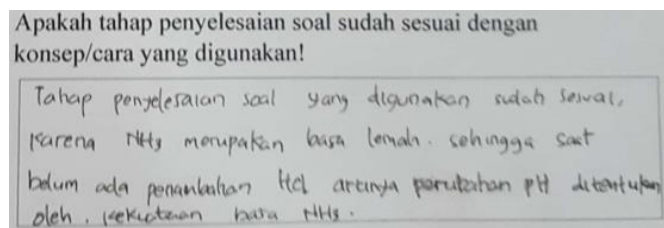 Apakah tahap penyelesaian soal sudah sesuai dengan
konsep/cara yang digunakan!
Tahap penyelesaian soal yang digunakan sudah sesuai,
karena NH3 merupakan basa lemah. sehingga saat
belum ada penambahan HCl artinya perubahan pH ditentukan
oleh. kekuatan basa NH3.